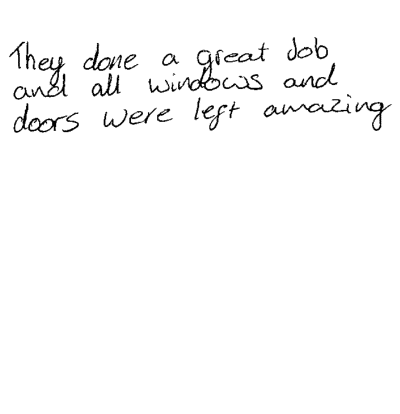 They done a great Job
and all windows and
doors were left amazing